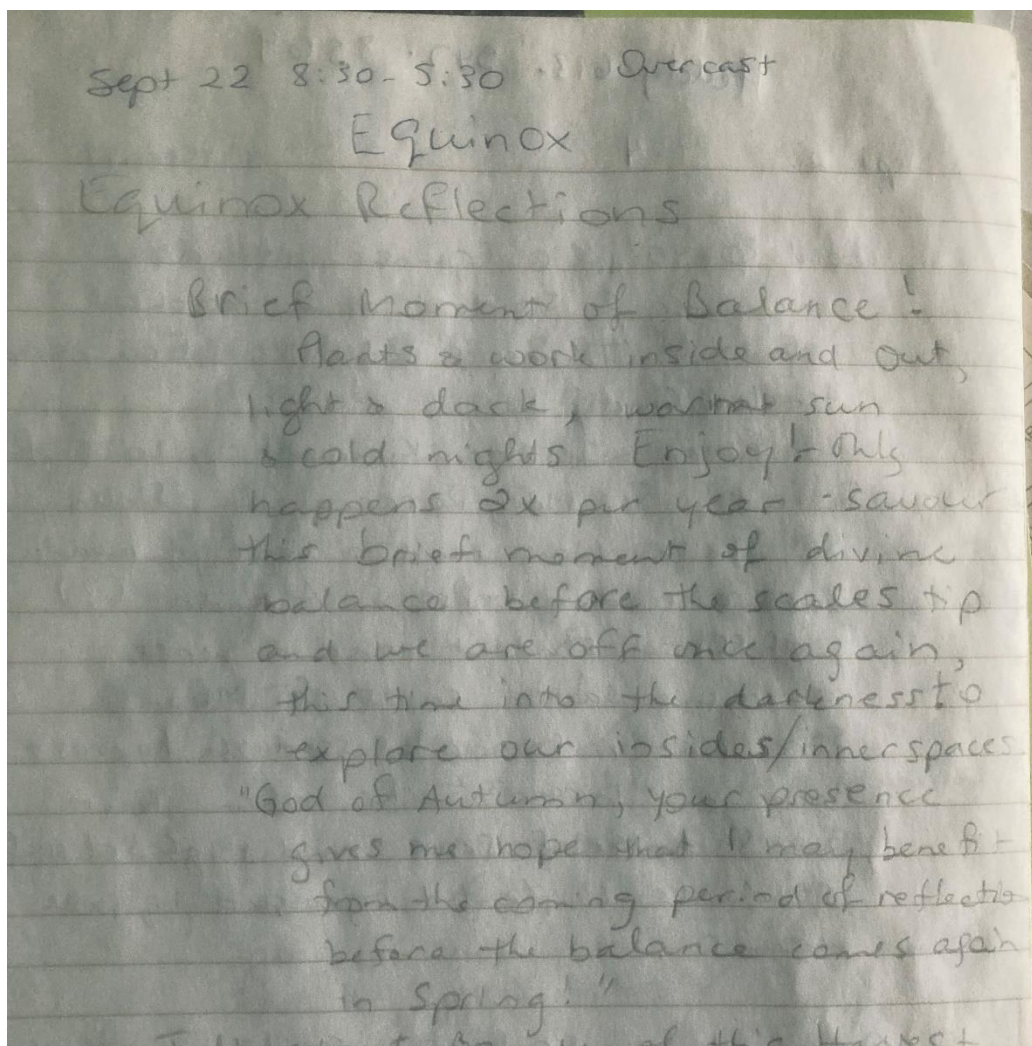 Sept 22 8:30-5:30 Overcast
Equinox
Equinox Reflections
Brief Moment of Balance!
Plants & work inside and out,
light & dark, warm sun
& cold nights Enjoy! - Only
happens 2x per year - savour
this brief moment of divine
balance before the scales tip
and we are off once again,
this time into the darkness to
explore our insides/inner spaces
"God of Autumn, your presence
gives me hope that I may benefit
from the coming period of reflection
before the balance comes again
in Spring!"
of this Harvest